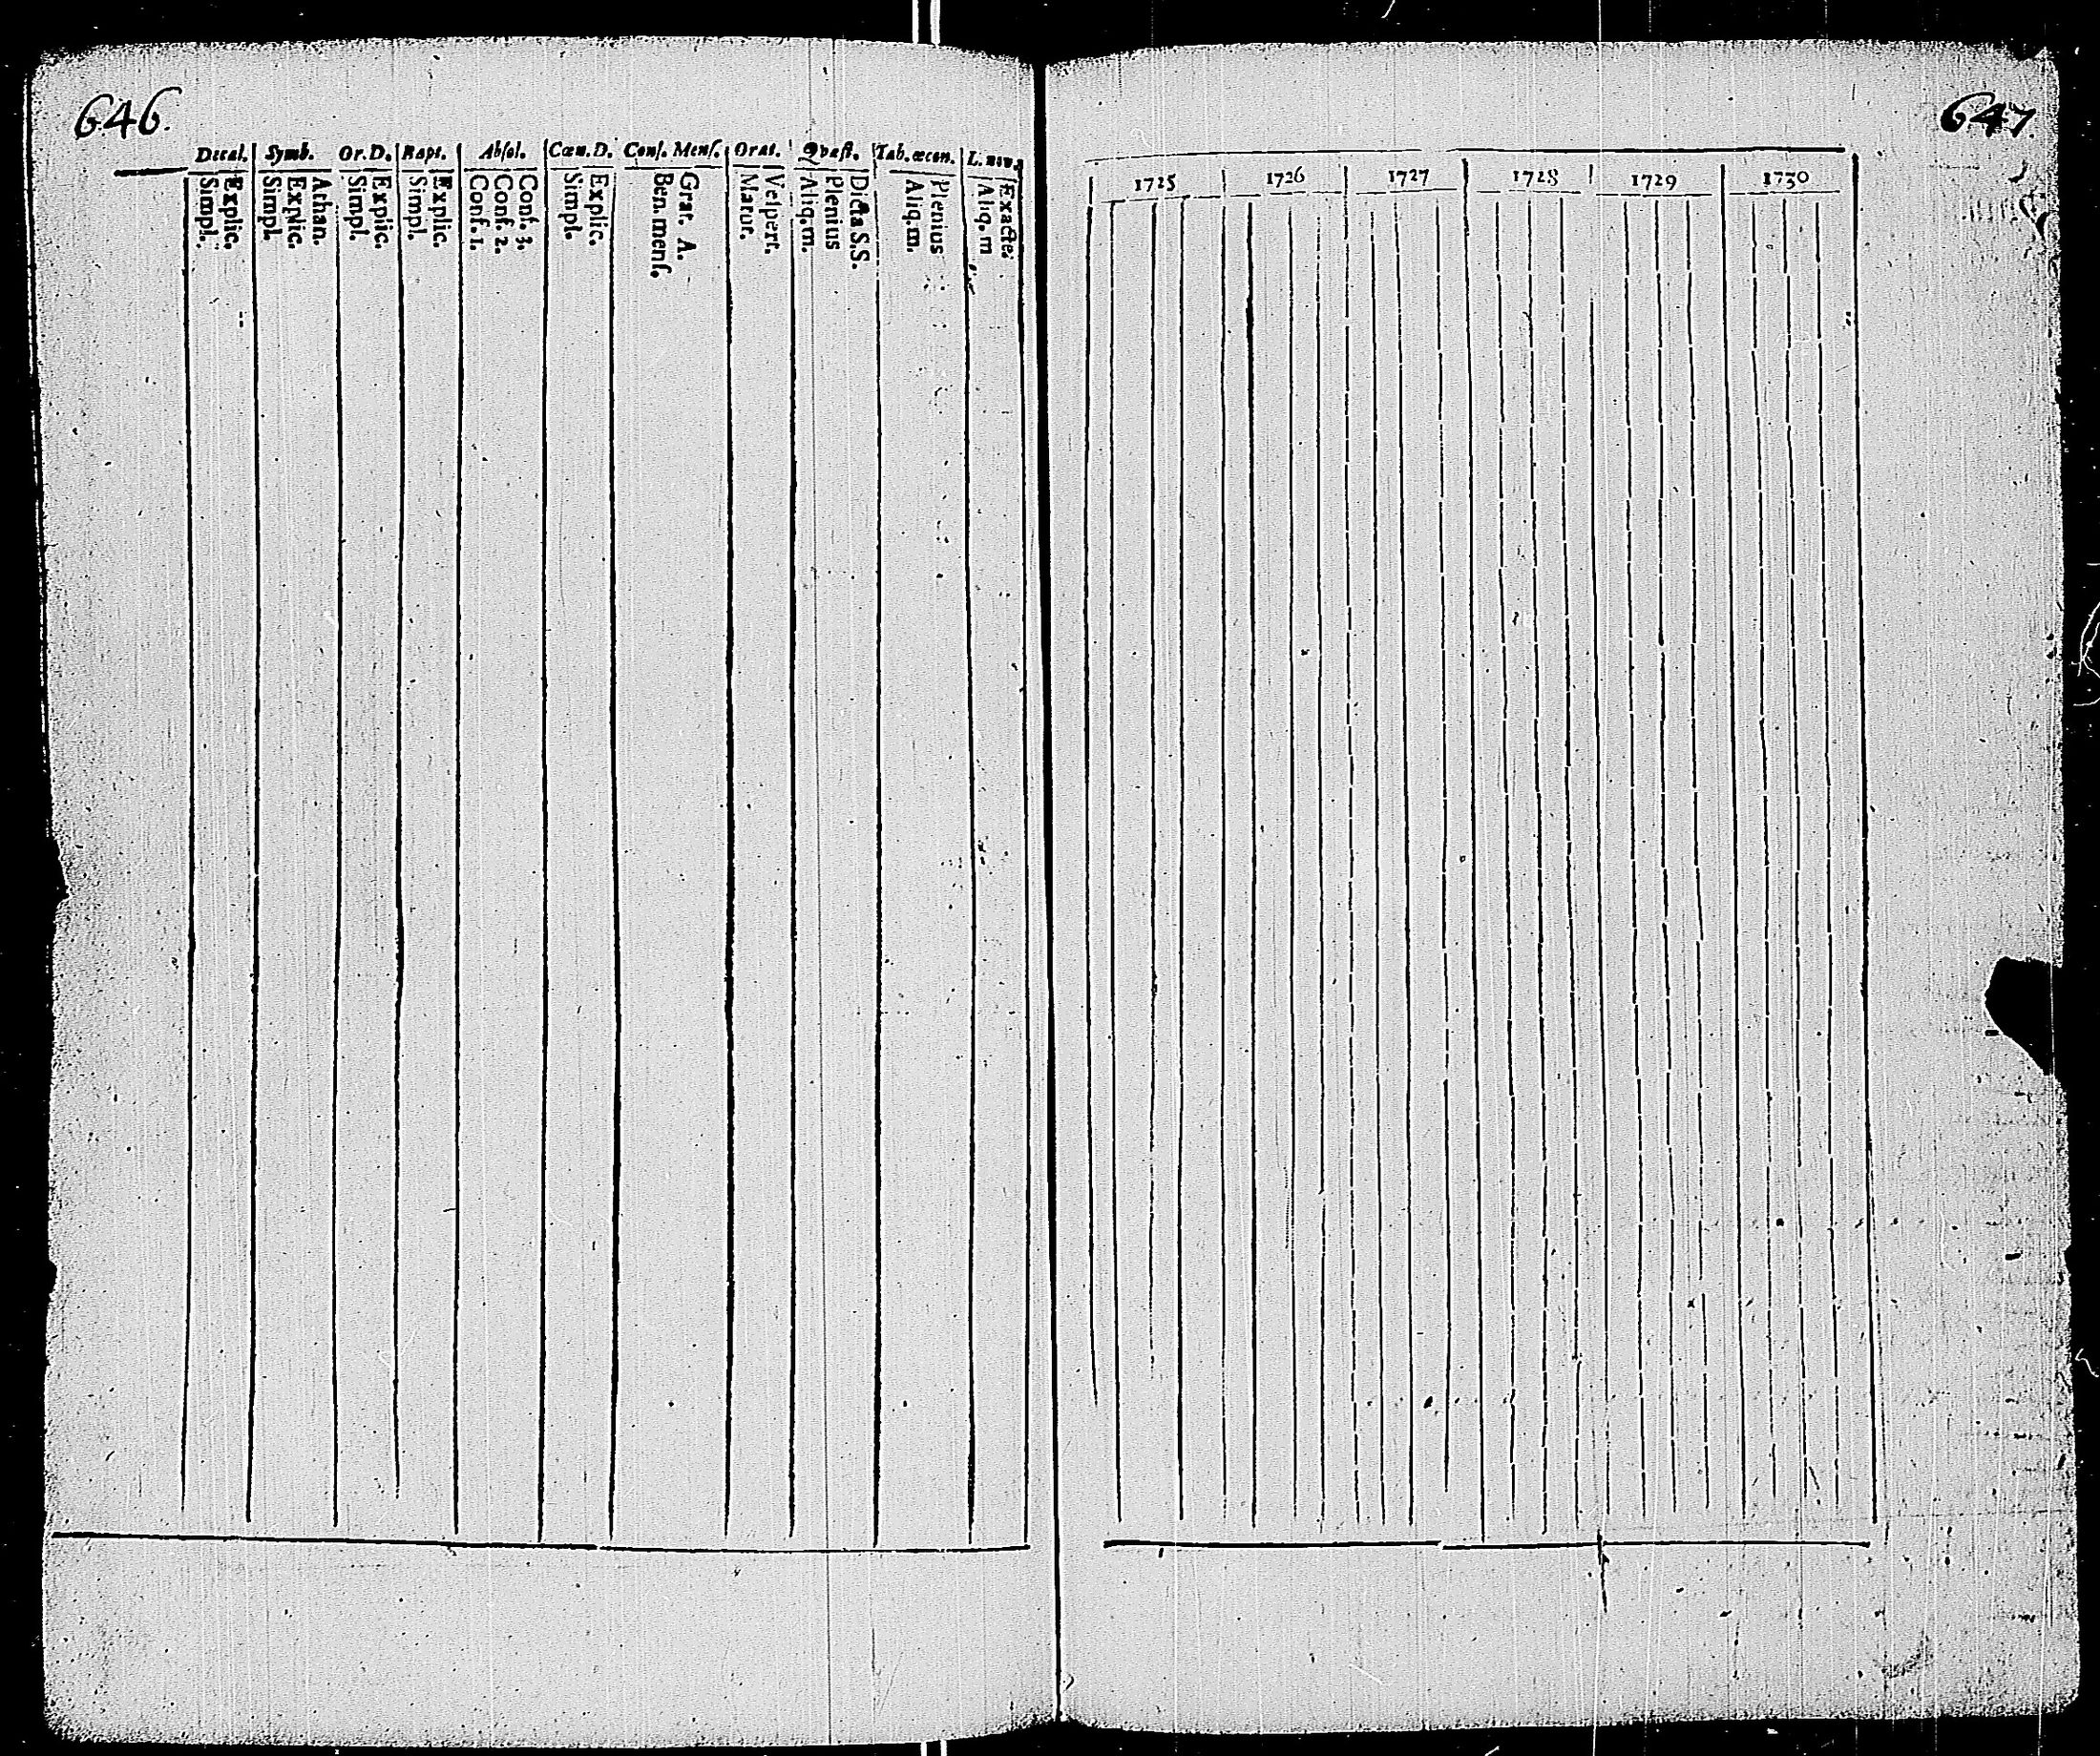 646.
Decal. Symb. Or.D. Bapt. Absol. Cœn.D. Conf. Mens. Orat. Qvæst. Tab. œcon. L. nov.
Simpl. Explic. Simpl. Explic. Athan. Simpl. Explic. Simpl. Explic. Conf. 1. Conf. 2. Conf. 3. Simpl. Explic. Ben. mens. Grat. A. Matut. Vespert. Aliq. m. Plenius Dicta. S.S. Aliq. m. Plenius Aliq. m Exactè.
647.
1725 1726 1727 1728 1729 1730